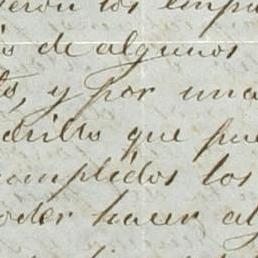 ieron los emp
s de algunos
ts, y por una
drilla que pue
cumplidos los
oder hacer al